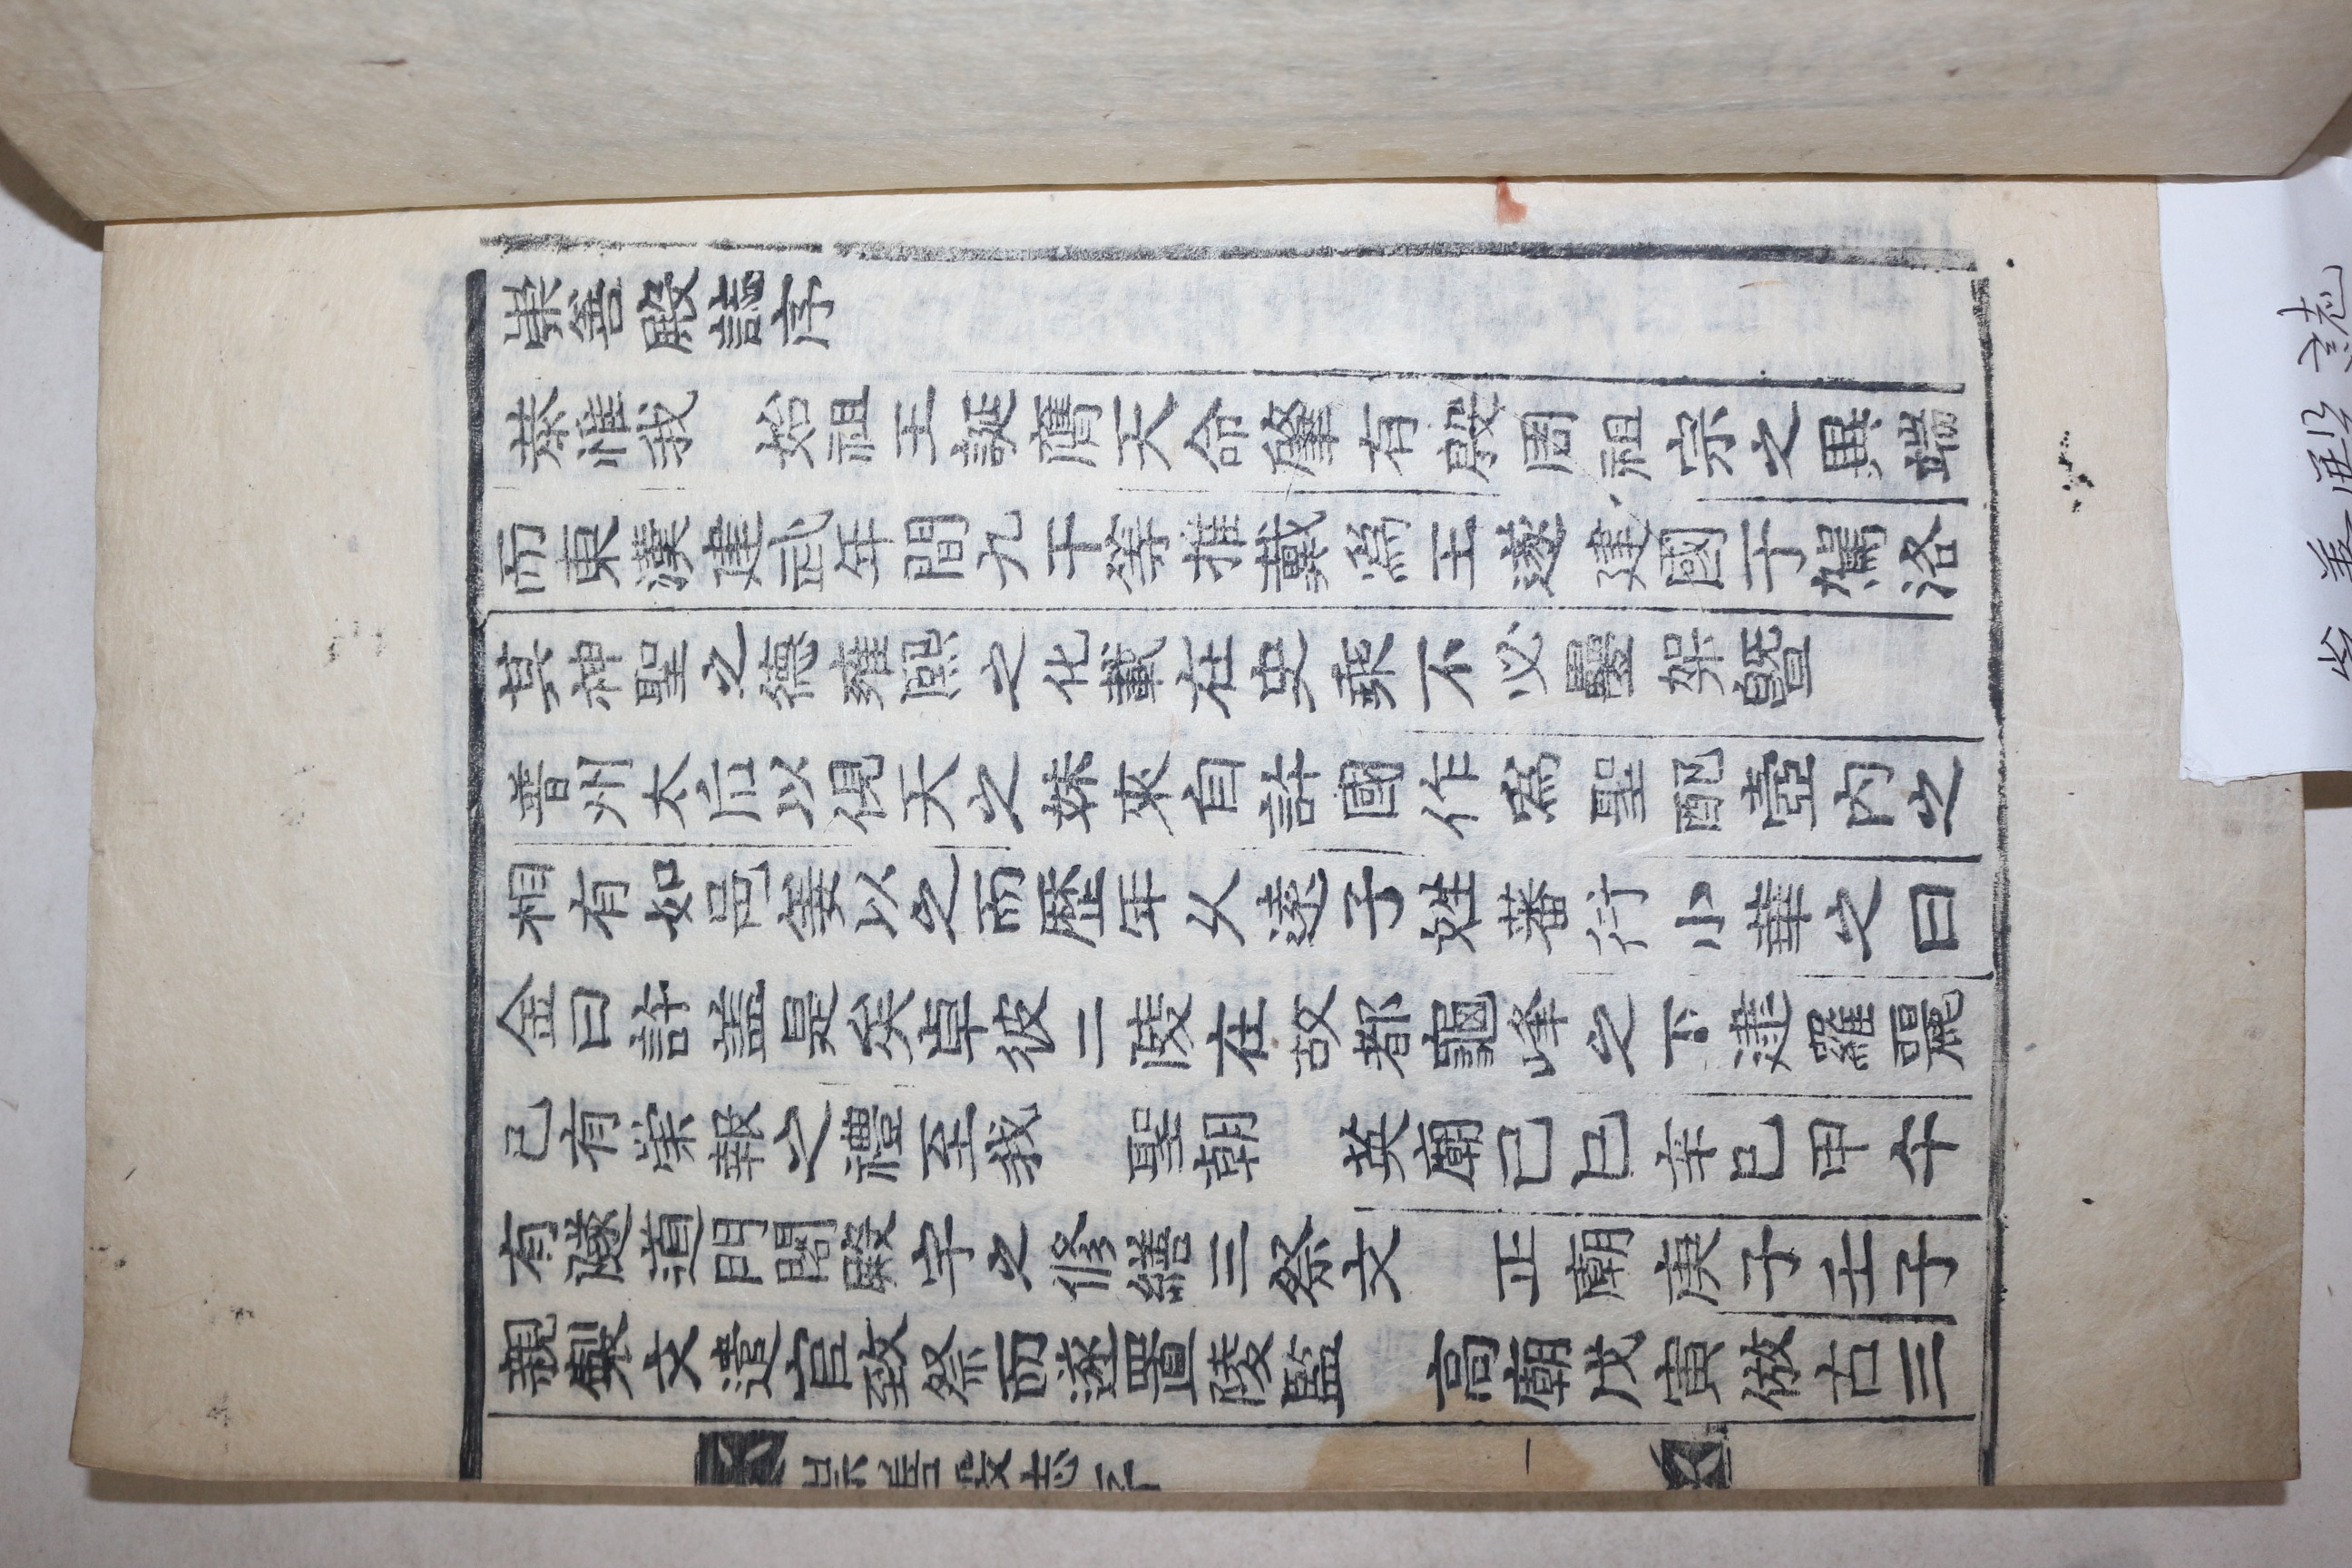 崇善殿誌序
恭惟我 始祖王誕膺天命肇有殷周祖宗之異端
而東漢建武年間九干等推戴爲王遂建國于駕洛
其神聖之德雍熙之化載在史乘不必疊架曁
普州太后以俔天之妹來自許國作爲聖配壼内之
相有如邑姜以之而歷年久遠子姓蕃衍小華之曰
金曰許盖是矣皐彼二陵在故都龜峰之下逮羅麗
已有崇報之禮至我 聖朝 英廟己巳辛巳甲午
有陵道門閣殿宇之修繕三祭文 正廟庚子壬子
親製文遣官致祭而遂置陵監 高廟戊寅倣古三
崇善殿志序 一
崇善殿誌